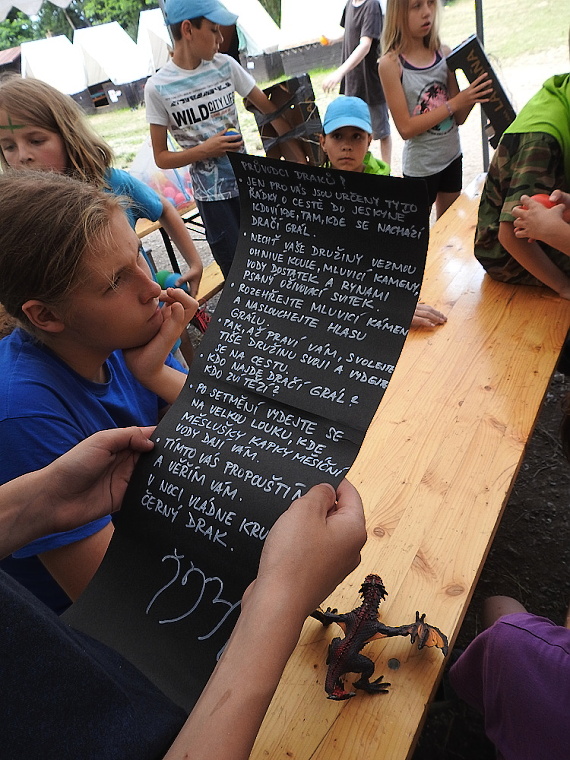 WILD
CITYLIFE
PRŮVODCI DRAKŮ!
• JEN PRO VÁS JSOU URČENY TYTO
ŘÁDKY O CESTĚ DO JESKYNĚ
KDOVÍ KDE, TAM, KDE SE NACHÁZÍ
DRAČÍ GRÁL.
• NECHŤ VAŠE DRUŽINY VEZMOU
OHNIVÉ KOULE, MLUVÍCÍ KAMENY,
VODY DOSTATEK A RÝNAMI
PSANÝ OŽIVOVACÍ SVITEK.
• ROZEHŘEJTE MLUVÍCÍ KÁMEN
A NASLOUCHEJTE HLASU
GRÁLU.
• PAK, AŽ PRAVÍ VÁM, SVOLEJTE
TIŠE DRUŽINU SVOJI A VYDEJTE
SE NA CESTU.
• KDO NAJDE DRAČÍ GRÁL?
KDO ZVÍTĚZÍ?
• PO SETMĚNÍ VYDEJTE SE
NA VELKOU LOUKU, KDE
MĚSLUŠKY KAPKY MĚSÍČNÍ
VODY DAJÍ VÁM.
• TÍMTO VÁS PROPOUŠTÍM
A VĚŘÍM VÁM.
V NOCI VLÁDNE KRU
ČERNÝ DRAK.